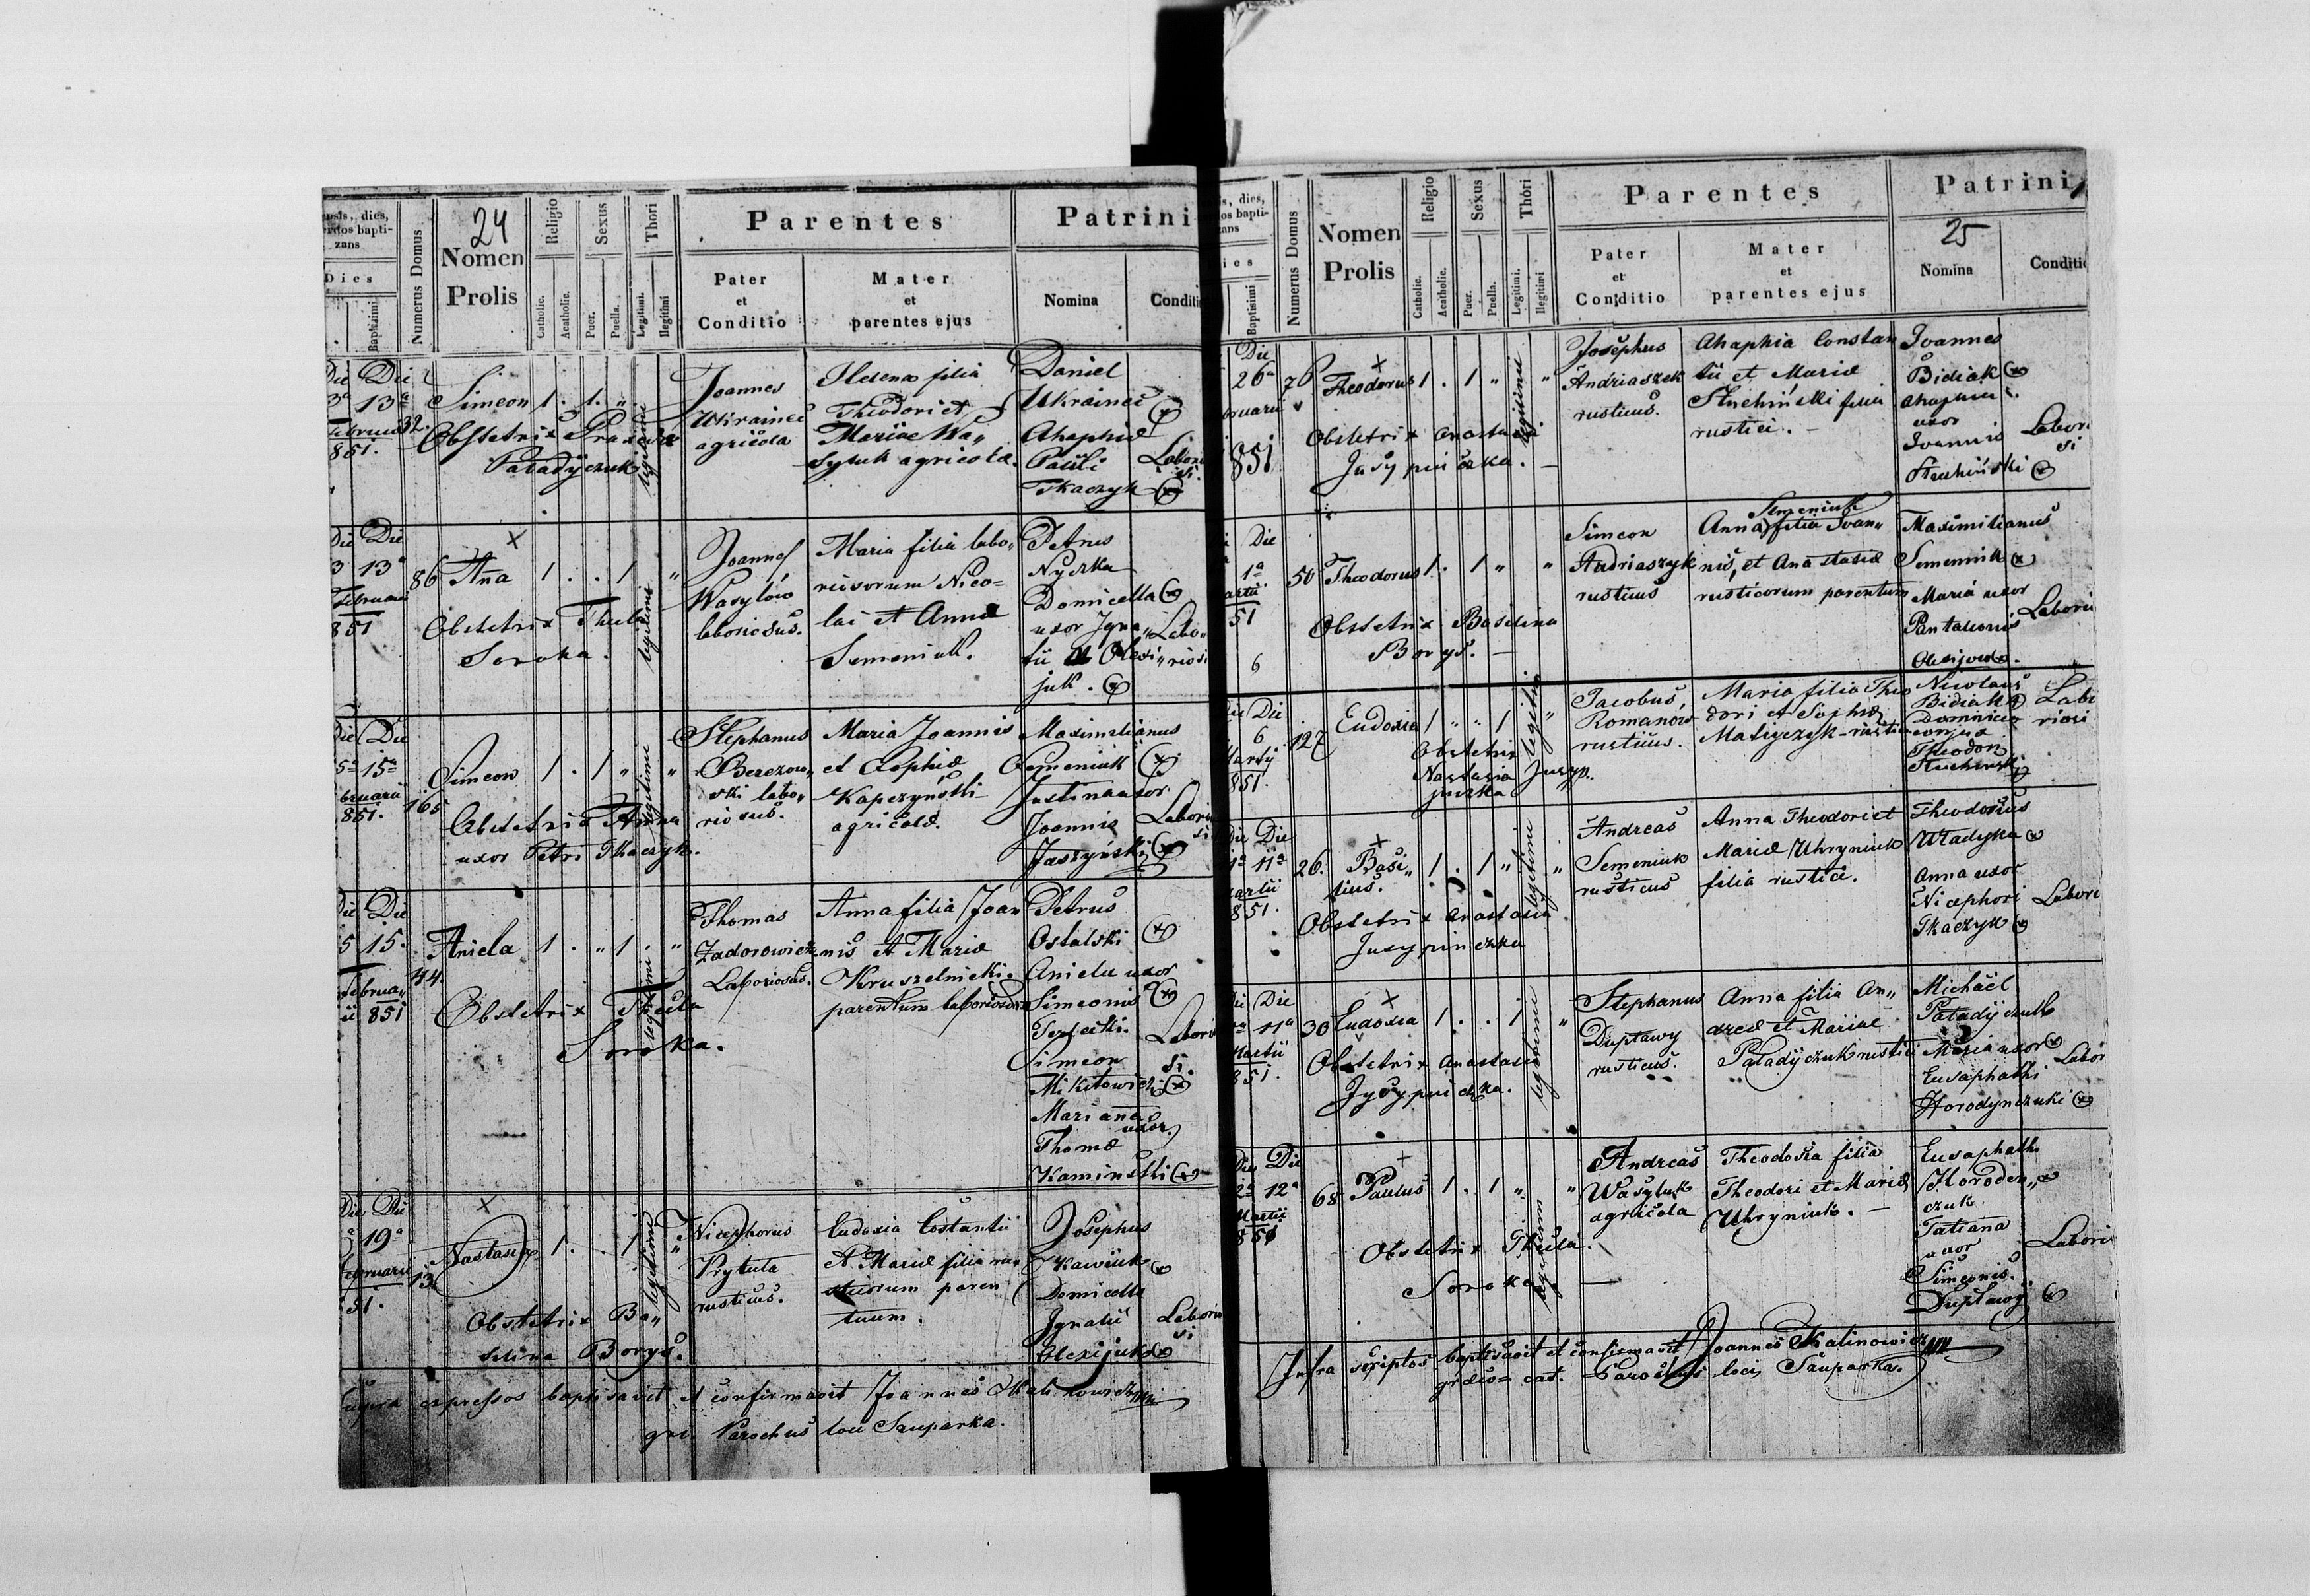 24
ensis, dies,
erdos bapti-
zans
Dies
Baptisimi
Numerus Domus
Nomen
Prolis
Religio
Catholic.
Acatholic.
Sexus
Puer.
Puella.
Thori
Legitimi.
Ilegitimi
Parentes
Pater
et
Conditio
Mater
et
parentes ejus
Patrini
Nomina
Conditi
Die Die
3a 13a
Februarii
851.
32.
Simeon 1 . 1. „
Obstetrix Praxeda
Paladijczuk
legitimi
Joannes
Ukrainec
agricola
Helena filia
Theodori et
Mariae Wa„
syluk agricolae.
Daniel
Ukrainec
Ahaphia
Pauli
Tkaczyk
Laborio
si.
Die Die
3 13a
Februarii
851
86 Anna 1 . . 1 „
Obstetrix Thecla
Soroka.
legitimi
Joannes
Wasylów
laboriosus.
Maria filia labo„
riosorum Nico=
lai et Annae
Semeniuk.
Petrus
Nyczka
Domicella
uxor Igna„
tii Olexi„
juk.
Labo„
riosi
Die Die
5a 15a
bruarii
851.
165
Simeon 1 . 1 „ „
Obstetrix Anna
uxor Petri Tkaczyk.
legitimi
Stephanus
Berezow„
ski labo„
riosus.
Maria Joannis
et Sophiae
Kapczyński
agricolae.
Maximilianus
Semeniuk
Justina uxor
Joannis
Jaszyński
Labori
si
Die Die
5 15.
Februa„
ii 851
44.
Aniela 1 . „ 1 . „
Obstetrix Thecla
Soroka.
legitimi
Thomas
Zadorowicz
Laboriosus.
Anna filia Joan
nis et Mariae
Kruszelnicki
parentum laboriosorum
Petrus
Ostalski
Aniela uxor
Simeonis
Simeon
Mikitowicz
Marianna
uxor
Thomae
Kamiński
Labori
si.
Die Die
19a
Februarii
51.
13
Nastasia 1 . . 1 „
Obstetrix Ba„
silina Borys.
legitimi
Nicephorus
Prytuła
rusticus.
Eudoxia Costantii
et Mariae filia ru„
sticorum paren
tuum.
Josephus
Domicella
Ignatii
Olexijuk
Laborio
si
Supra expressos baptisavit et confirmavit Joannes Kalinowicz
gr. Parochus loci Szuparka.
is, dies,
os bapti-
zans
ies
Baptisimi
Numerus Domus
Nomen
Prolis
Religio
Catholic.
Acatholic.
Sexus
Puer.
Puella.
Thori
Legitimi.
Ilegitimi
Parentes
Pater
et
Conditio
Mater
et
parentes ejus
Patrini
25
Nomina
Conditio
Die
26a
bruarii
851
76 Theodorus 1 . 1 „ „
Obstetrix Anastasia
legitimi
Josephus
Andriaszek
rusticus.
Ahaphia Constan
tii et Mariae
Stuchiński filia
rustici.
Joannes
Bidiak
Ahaphia
uxor
Joannis
Stuchiński
Labori
si
Die
1a
artii
51
6
50 Theodorus 1 . 1 „ „
Obstetrix Basilina
Borys.
Simeon
Andriaszyk
rusticus
Semeniuk
Anna filia Joan„
nis, et Anastasiae
rusticorum parentum
Maximilianus
Semeniuk
Maria uxor
Pantaleonis
Labori
Die Die
6
Martij
851.
127
Eudoxia 1 „ „ 1 „
Obstetrix
Nastasia Jusyp
legitimi
Jacobus
Romanów
rusticus.
Maria filia Theo
dori et Sophiae
Matijczyk - rustici
Nicolaus
Bidiak
Domnicia
conjux
Theodori
Stuchinski
Labo
riosi
Die Die
11a 11a
artii
851.
26. Basi„ 1 . 1 „ „
lius.
Obstetrix Anastasia
Jusypinczka
legitimi
Andreas
Semeniuk
rusticus
Anna Theodori et
Mariae Uhryniuk
filia rustici.
Theodosius
Władyka
Anna uxor
Nicephori
Tkaczyk
Labori
Die Die
11a
Martii
851.
30 Eudoxia 1 . . 1 „
Obstetrix Anastasia
legitimi
Stephanus
Dupławy
rusticus.
Anna filia An„
dreae et Mariae
Paladijczuk rustici
Michael
Paladijczuk
Maria uxor
Eusaphathi
Horodynczuki
Labor
Die Die
12a 12a
Martii
851
68 Paulus 1 . 1 „ „
Obstetrix Thecla
Soroka.
legitimi
Andreas
Wasyluk
agricola
Theodosia filia
Theodori et Mariae
Uhryniuk.
Eusaphath
Horoden„
czuk
Tatianna
uxor
Simeonis
Dupławy
Labori
Infra scriptos baptisavit et confirmavit Joannes Kalinowicz
graeco=cat. Parochus loci Szuparka.